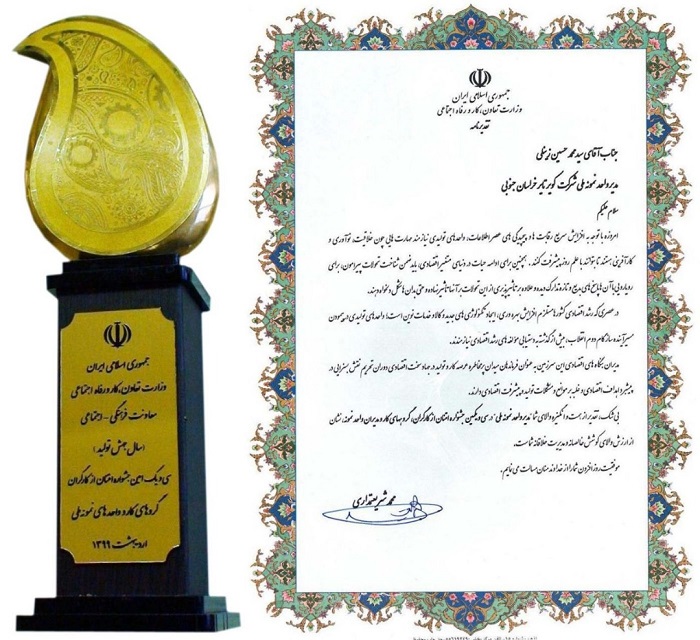 جمهوری اسلامی ایران
وزارت تعاون، کار و رفاه اجتماعی
معاونت فرهنگی - اجتماعی
(سال جهش تولید)
سی و یک امین جشنواره امتنان از کارگران
گروه های کار و واحدهای نمونه ملی
اردیبهشت ۱۳۹۹
جمهوری اسلامی ایران
وزارت تعاون، کار و رفاه اجتماعی
تقدیرنامه
جناب آقای سید محمد حسین زینلی
مدیر واحد نمونه ملی شرکت کویر تایر خراسان جنوبی
سلام علیکم
امروزه با توجه به افزایش سریع رقابت ها و پیچیدگی های عصر اطلاعات، واحدهای تولیدی نیازمند مهارت هایی چون خلاقیت، نوآوری و
کارآفرینی هستند تا بتوانند با علم روز پیشرفت کنند. همچنین برای ادامه حیات در دنیای متغیر اقتصادی، باید ضمن شناخت تحولات پیرامون، برای
رویارویی با آن ها پاسخ های بدیع و تازه تدارک دیده و علاوه بر تاثیرپذیری از این تحولات بر آنها تاثیر نهاده و حتی بدان ها شکل دلخواه دهند.
در عصری که رشد اقتصادی کشورها مستلزم افزایش بهره وری، ایجاد تکنولوژی های جدید و کالا و خدمات نوین است؛ واحدهای تولیدی
مسیر آینده و ساز گام دوم انقلاب، بیش از گذشته به دستیابی مولفه های رشد اقتصادی نیازمندند.
مدیران بنگاه های اقتصادی این سرزمین به عنوان فرماندهان میدان پرمخاطره عرصه کار و تولید در جهاد سخت اقتصادی دوران تحریم نقش بسزایی در
پیشبرد اهداف اقتصادی و غلبه بر موانع و مشکلات تولید و پیشرفت اقتصادی دارند.
بی شک، تقدیر از همت و انگیزه والای شما مدیر واحد نمونه ملی در سی و یکمین جشنواره امتنان از کارگران، گروه های کار و مدیران واحد نمونه، نشان
از ارزش والای کوشش خالصانه و مدیریت خلاقانه شماست.
موفقیت روزافزون شما را از خداوند منان مسالت می نمایم.
محمد شریعتمداری